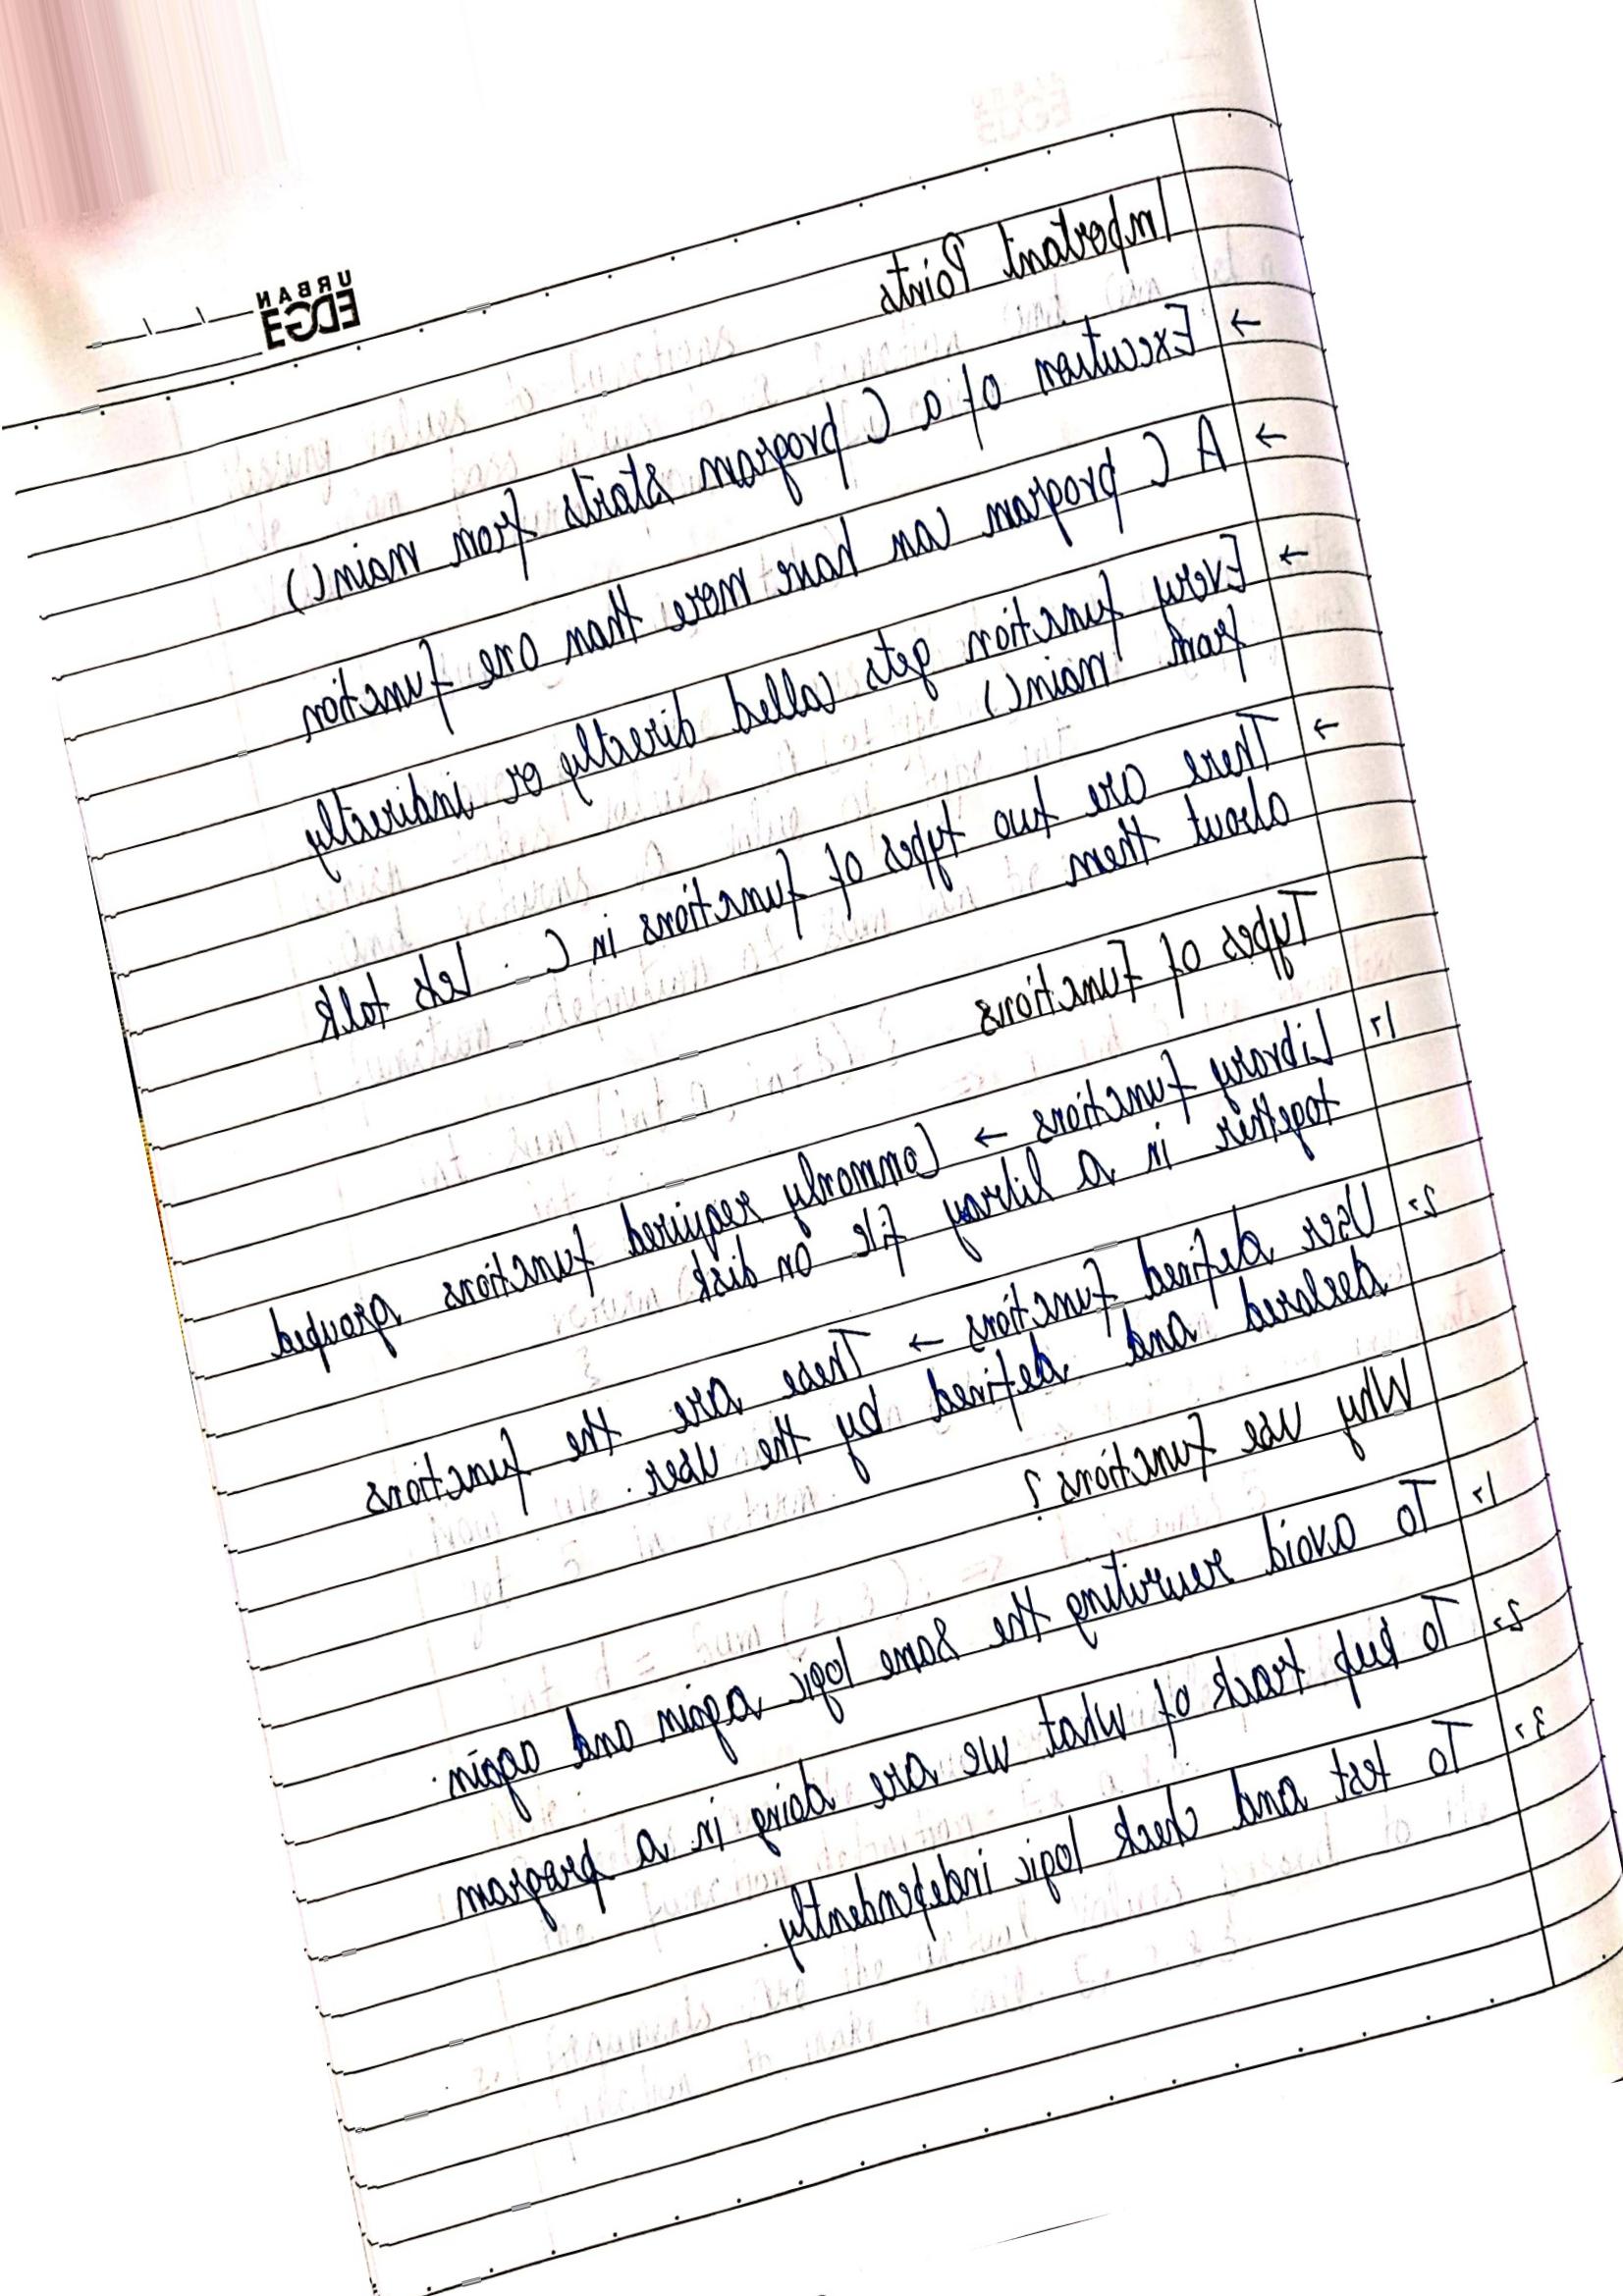 URBAN
EDGE
Important Points
→ Execution of a C program starts from main()
→ A C program can have more than one function
→ Every function gets called directly or indirectly
from main()
→ There are two types of functions in C. Lets talk
about them
Types of functions
1. Library functions → Commonly required functions grouped
together in a library file on disk
2. User defined functions → These are the functions
declared and defined by the User.
Why use functions?
1. To avoid rewriting the same logic again and again.
2. To keep track of what we are doing in a program
3. To test and check logic independently.